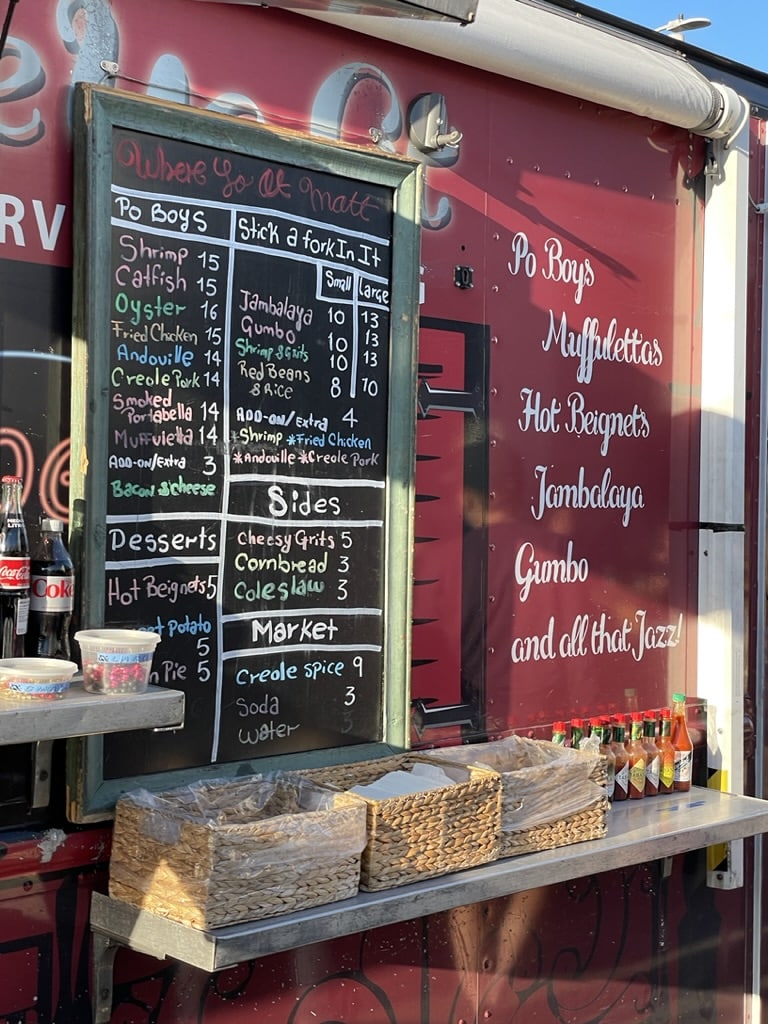 RV
Where Yo At Matt
Po Boys
Shrimp 15
Catfish 15
Oyster 16
Fried Chicken 15
Andouille 14
Creole Pork 14
Smoked
Portabella 14
Muffuletta 14
ADD-ON/Extra 3
Bacon & cheese
Desserts
Hot Beignets 5
Potato
5
Pie 5
Stick a fork In It
Small Large
Jambalaya 10 13
Gumbo 10 13
Shrimp & Grits 10 13
Red Beans
& Rice 8 10
ADD-ON/Extra 4
*Shrimp *Fried Chicken
*Andouille *Creole Pork
Sides
Cheesy Grits 5
Cornbread 3
Coleslaw 3
Market
Creole spice 9
Soda 3
Water 3
Po Boys
Muffulettas
Hot Beignets
Jambalaya
Gumbo
and all that Jazz!
Coca-Cola
Coke